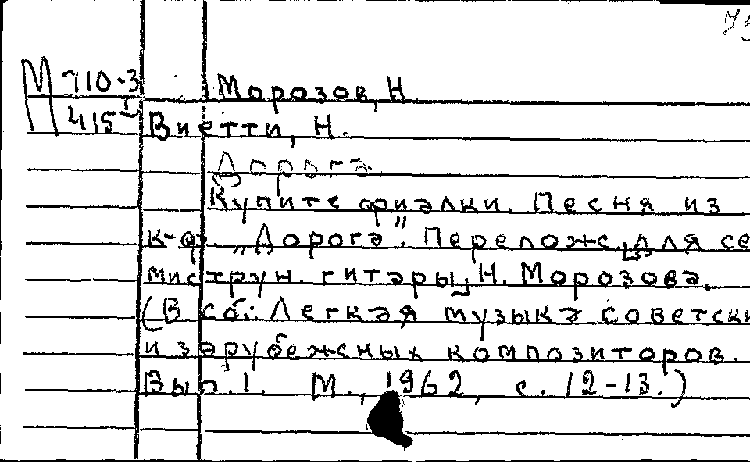 75
М 710.3 Морозов, Н.
415 Виетти, Н.
Дорога.
Купите фиалки. Песня из
к-ф. „Дорога". Перелож. для се
миструн. гитары Н. Морозова.
(В сб.: Легкая музыка советски
и зарубежных композиторов.
Вып. 1. М., 1962, с. 12-13.)